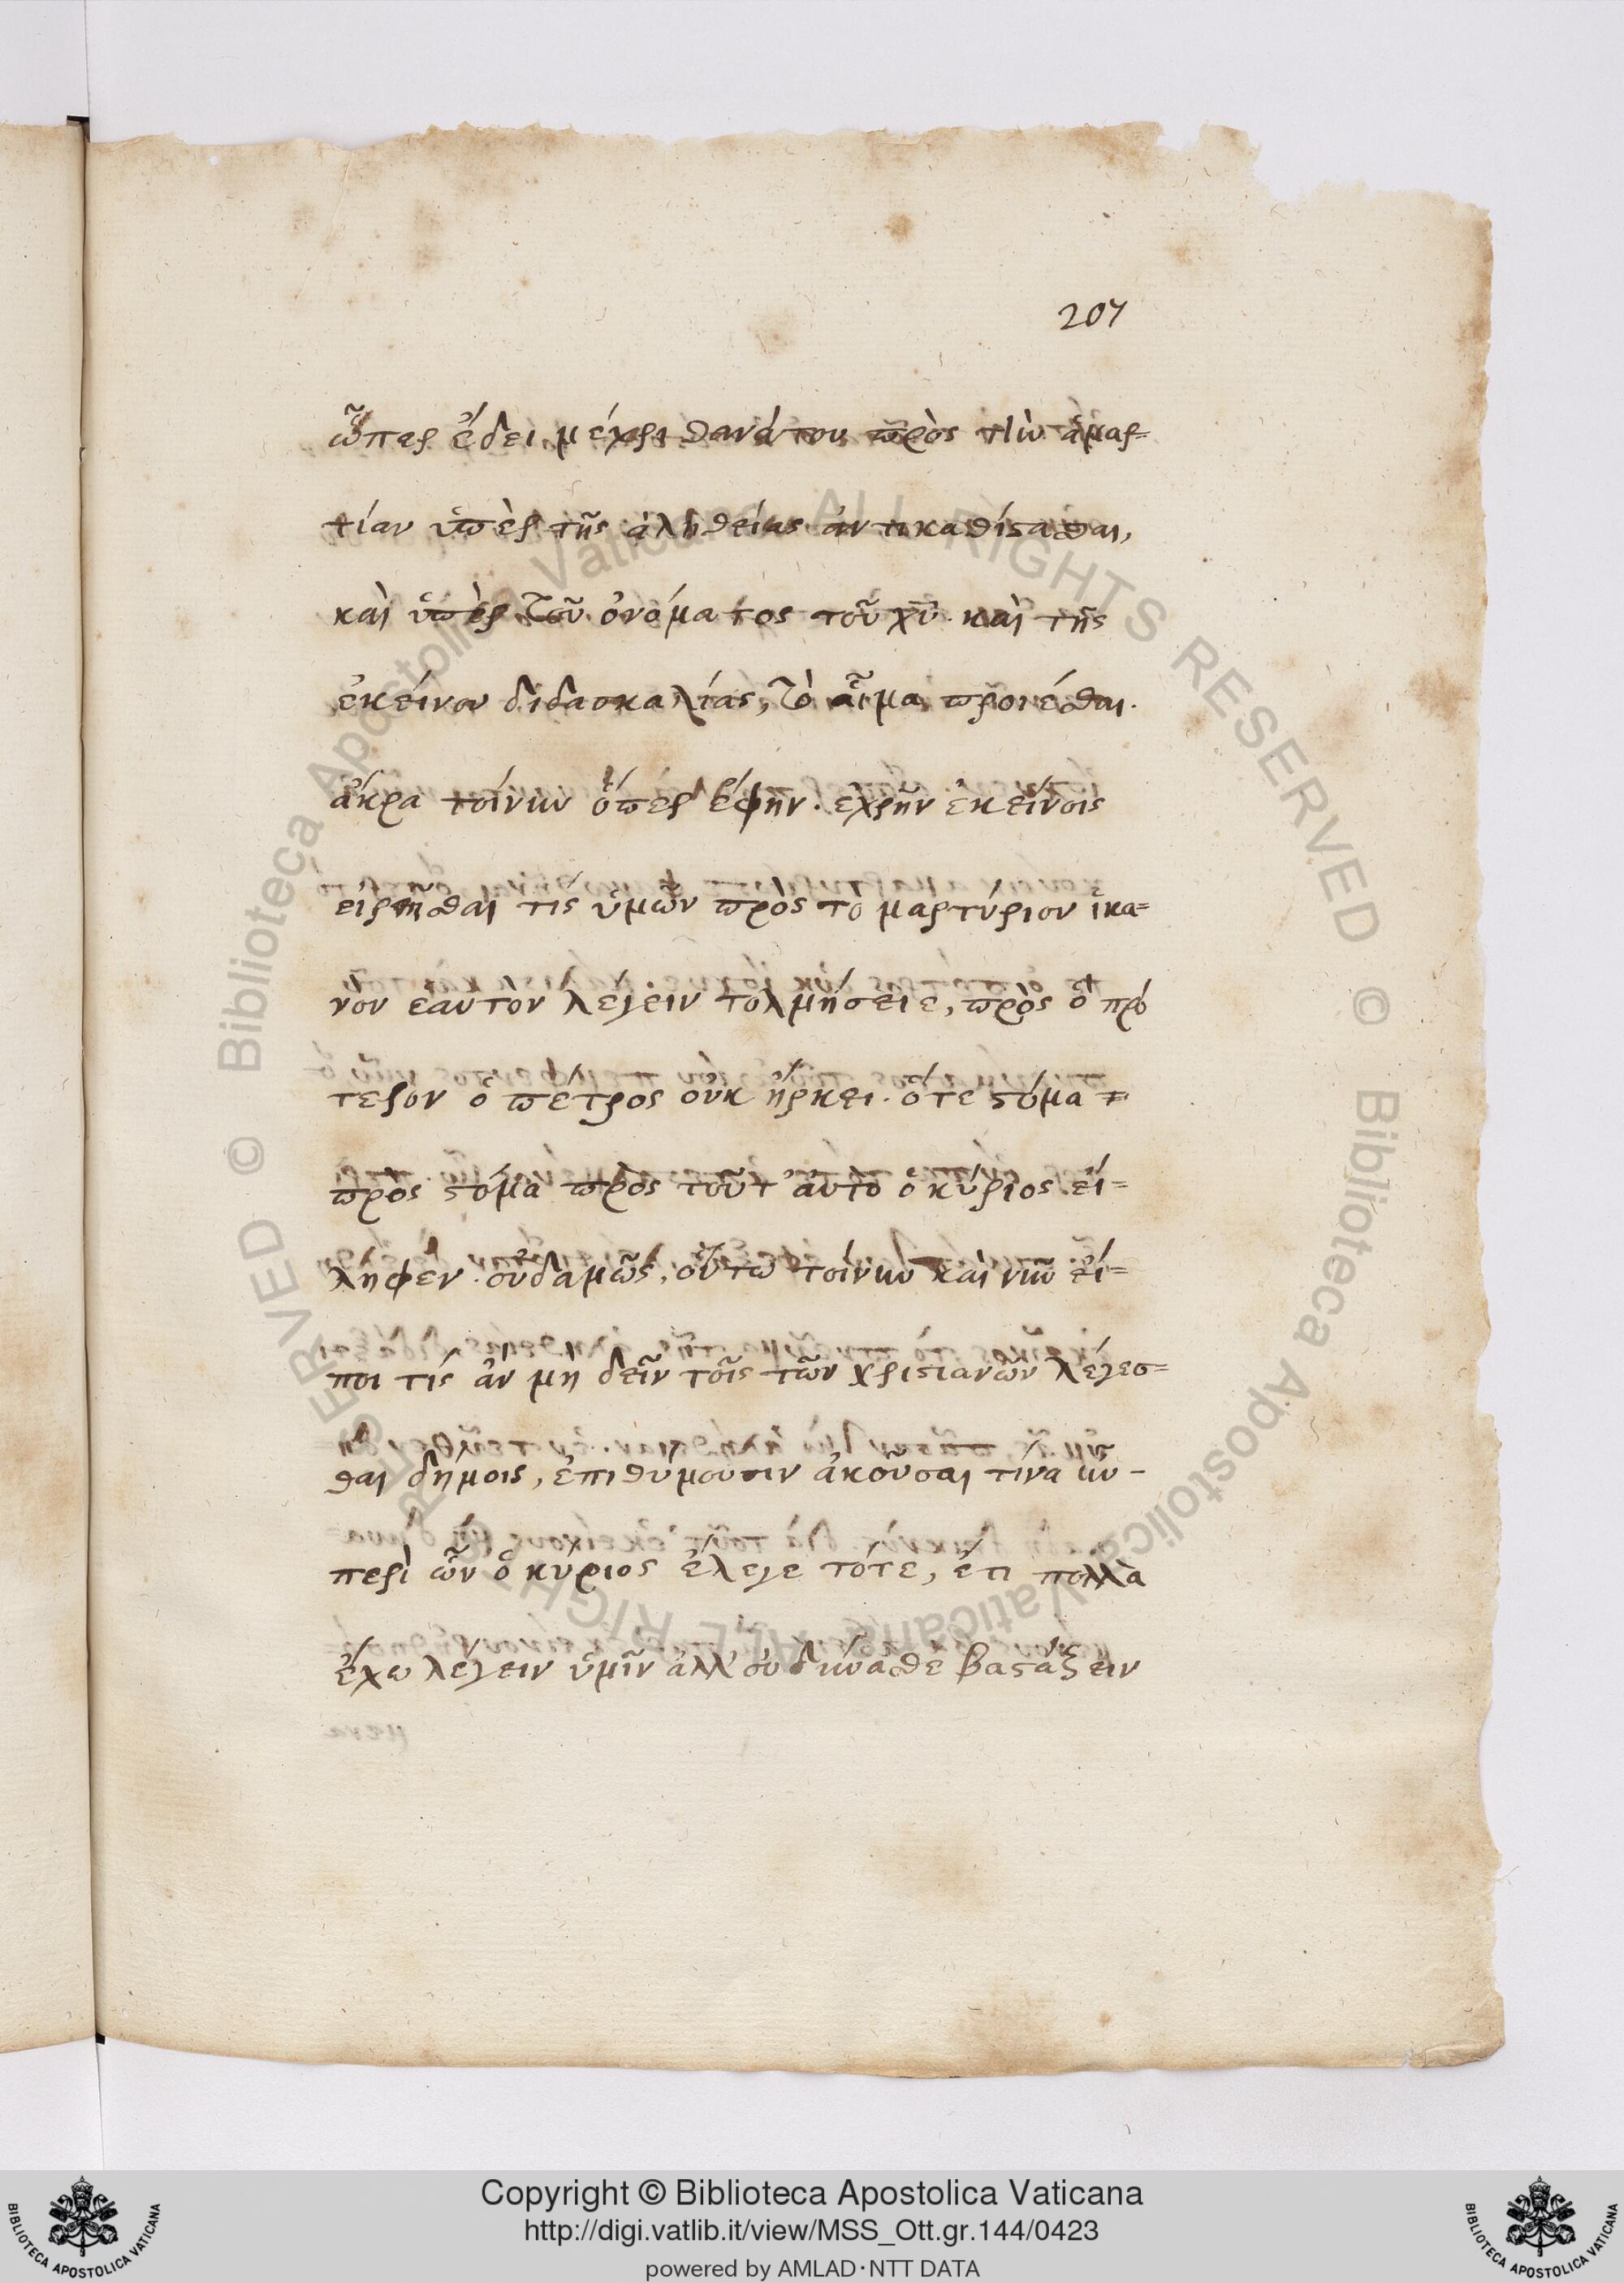 207
ὧπερ ἔδει μέχρι θανάτου πρὸς τὴν ἁμαρ=
τίαν ὑπὲρ τῆς ἀληθείας ἀντικαθίςασθαι,
καὶ ὑπὲρ τοῦ ὀνόματος τοῦ χῦ. καὶ τῆς
ἐκείνου διδασκαλίας, τὸ αἷμα προιέσθαι.
ἄκρα τοίνυν ὅπερ ἔφην. ἐχρῆν ἐκείνοις
εἰρῆσθαι τίς ὑμῶν πρὸς τὸ μαρτύριον ἱκα=
νὸν ἑαυτὸν λέγειν τολμήσειε, πρὸς ὃ πρό
τερον ὁ πέτρος οὐκ ἤρκει. ὅτε ςόμα =
πρὸς ςόμα πρὸς τοῦτ' αὐτὸ ὁ κύριος εἴ=
ληφεν. οὐδαμῶς, οὕτω τοίνυν καὶ νῦν εἴ=
ποι τίς ἂν μὴ δεῖν τοῖς τῶν χριςιανῶν λέγεσ=
θαι δήμοις, ἐπιθυμοῦσιν ἀκοῦσαι τίνα ἦν -
περὶ ὧν ὁ κύριος ἔλεγε τότε, ἔτι πολλὰ
ἔχω λέγειν ὑμῖν ἀλλ' οὐ δύνασθε βαςάζειν
Copyright © Biblioteca Apostolica Vaticana
http://digi.vatlib.it/view/MSS_Ott.gr.144/0423
powered by AMLAD·NTT DATA
BIBLIOTECA APOSTOLICA VATICANA
BIBLIOTECA APOSTOLICA VATICANA
© Biblioteca Apostolica Vaticana ALL RIGHTS RESERVED © Biblioteca Apostolica Vaticana ALL RIGHTS RESERVED